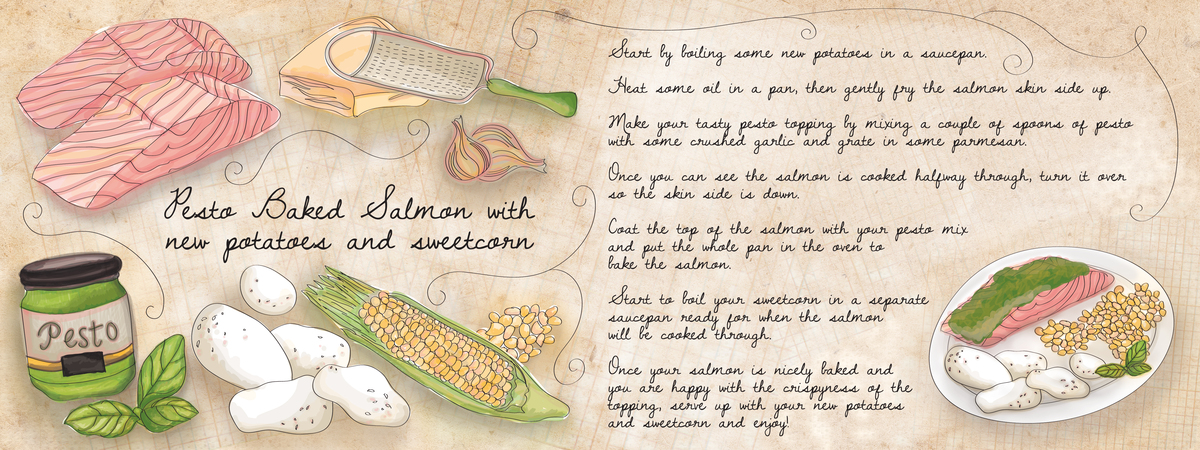 Pesto Baked Salmon with
new potatoes and sweetcorn
Pesto
Start by boiling some new potatoes in a saucepan.
Heat some oil in a pan, then gently fry the salmon skin side up.
Make your tasty pesto topping by mixing a couple of spoons of pesto
with some crushed garlic and grate in some parmesan.
Once you can see the salmon is cooked halfway through, turn it over
so the skin side is down.
Coat the top of the salmon with your pesto mix
and put the whole pan in the oven to
bake the salmon.
Start to boil your sweetcorn in a separate
saucepan ready for when the salmon
will be cooked through.
Once your salmon is nicely baked and
you are happy with the crispyness of the
topping, serve up with your new potatoes
and sweetcorn and enjoy!